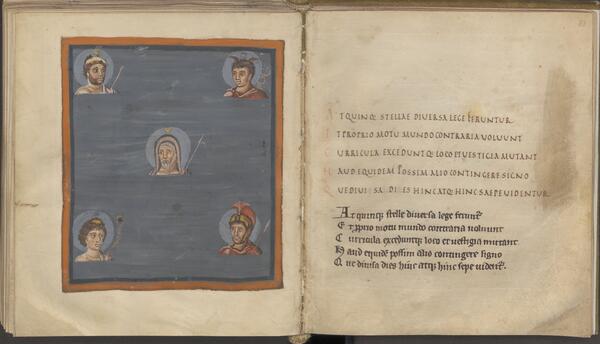 T QUINQ: STELLAE DIVERSA LEGE FERUNTUR
T PROPRIO MOTU MUNDO CONTRARIA VOLUUNT
URRICULA EXCEDUNTQ: LOCO ET UESTIGIA MUTANT
AUD EQUIDEM POSSIM ALIO CONTINGERE SIGNO
UE DIUISA DIES HINC ATQ: HINC SAEPE UIDENTUR
At quinq; stelle diuersa lege ferunt
Et pprio motu mundo contraria voluunt
Curricula exceduntq; loco et uestigia mutant
Haud equide possim alio contingere signo
Que diuisa dies hinc atq; hinc sepe uident.